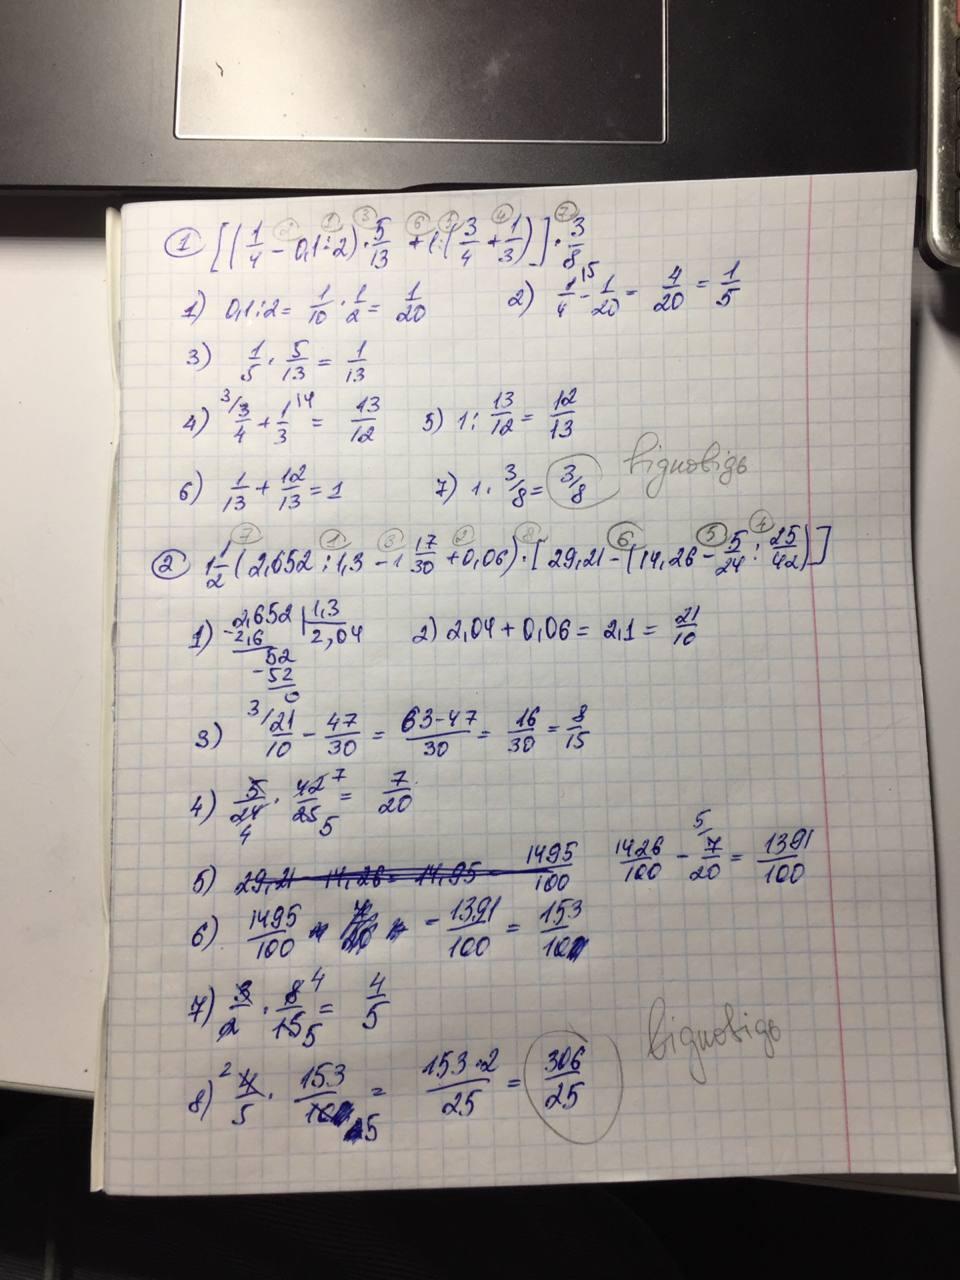 ① [(1/4 - 0,1:2)·5/13 + 1:(3/4 + 1/3)]·3/8
1) 0,1:2 = 1/10 · 1/2 = 1/20 2) 1/4 - 1/20 = 4/20 = 1/5
3) 1/5 · 5/13 = 1/13
4) 3/4 + 1/3 = 13/12 5) 1 : 13/12 = 12/13
6) 1/13 + 12/13 = 1 7) 1 · 3/8 = 3/8 відповідь
② 1 1/2 (2,652 : 1,3 - 1 17/30 + 0,06)·[29,21 - (14,26 - 5/24 : 25/42)]
1) 2,652 | 1,3 2) 2,04 + 0,06 = 2,1 = 21/10
- 2,6 2,04
52
- 52
0
3) 3/ 21/10 - 47/30 = 63-47/30 = 16/30 = 8/15
4) 5/24 · 42/25 = 7/20
5) 29,21 - 14,26 = 14,95 1495/100 1426/100 - 5/ 7/20 = 1391/100
6) 1495/100 - 1391/100 = 153/10
7) 3/2 · 8/15 = 4/5
8) 4/5 · 153/10 = 153·2/25 = 306/25 відповідь